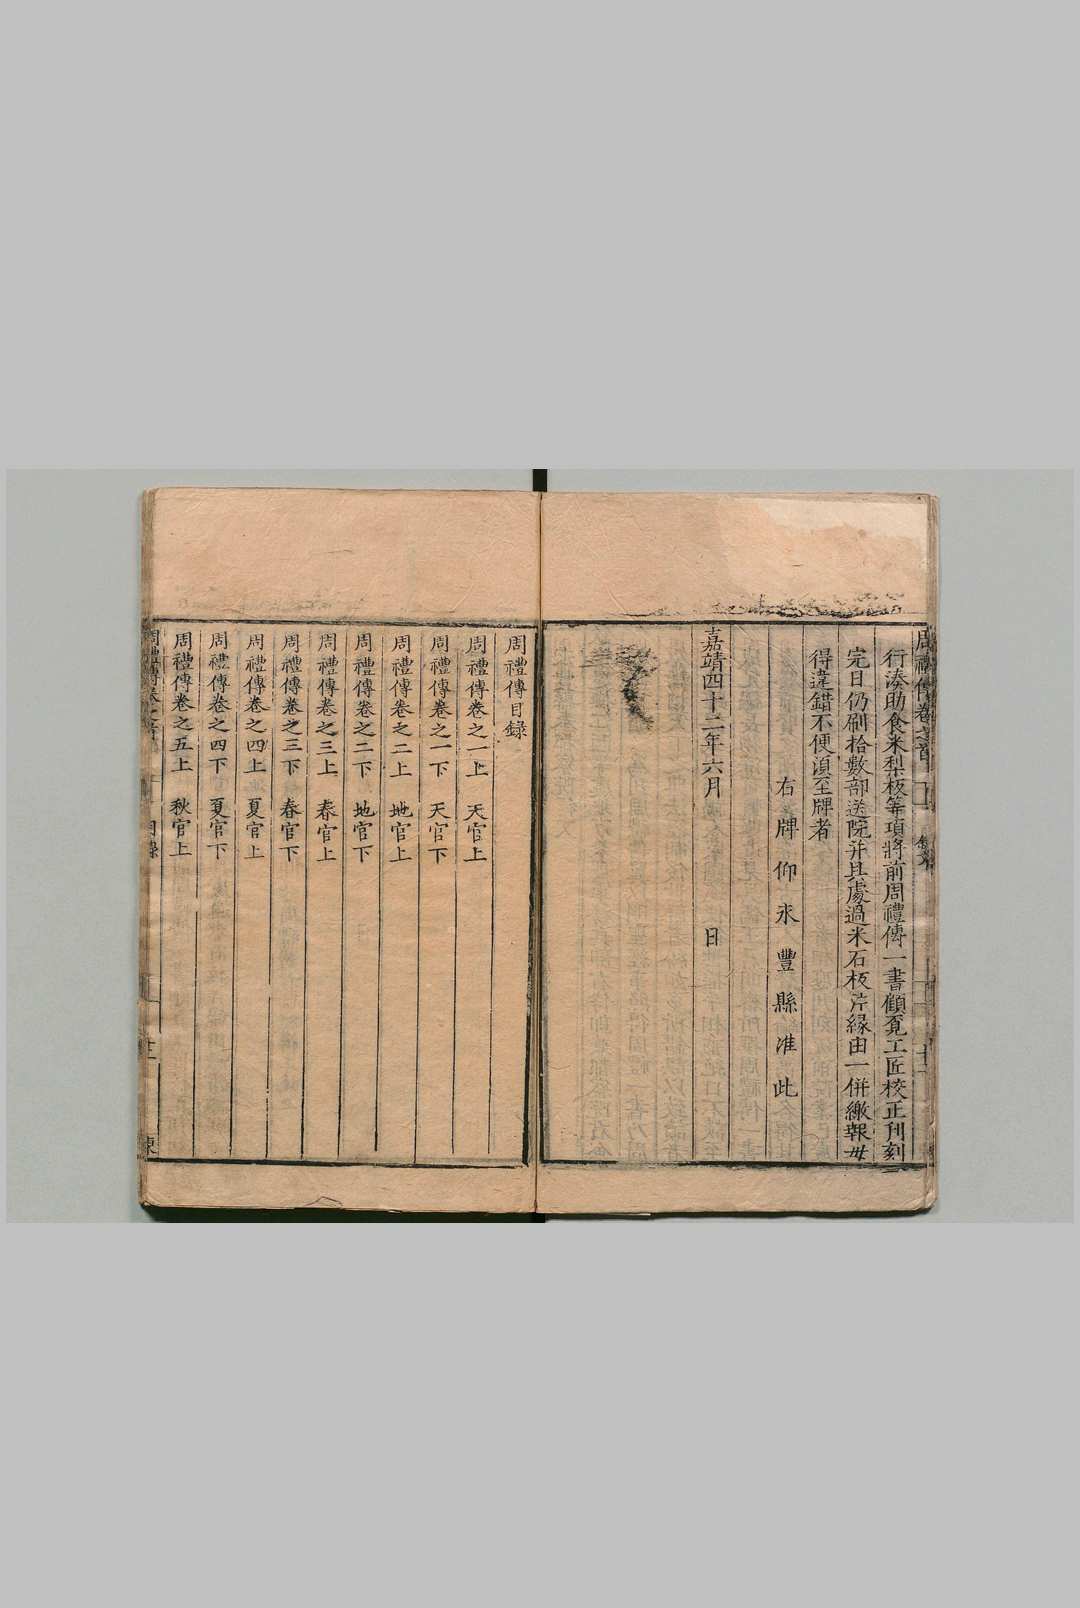 行湊助食米梨板等項將前周禮傳一書顧覓工匠校正刋刻
完日仍刷拾數部送院并具處過米石板片緣由一併繳報毋
得違錯不便湏至牌者
右牌仰永豐縣准此
嘉靖四十二年六月 日
周禮傳目錄
周禮傳卷之一上 天官上
周禮傳卷之一下 天官下
周禮傳卷之二上 地官上
周禮傳卷之二下 地官下
周禮傳卷之三上 春官上
周禮傳卷之三下 春官下
周禮傳卷之四上 夏官上
周禮傳卷之四下 夏官下
周禮傳卷之五上 秋官上